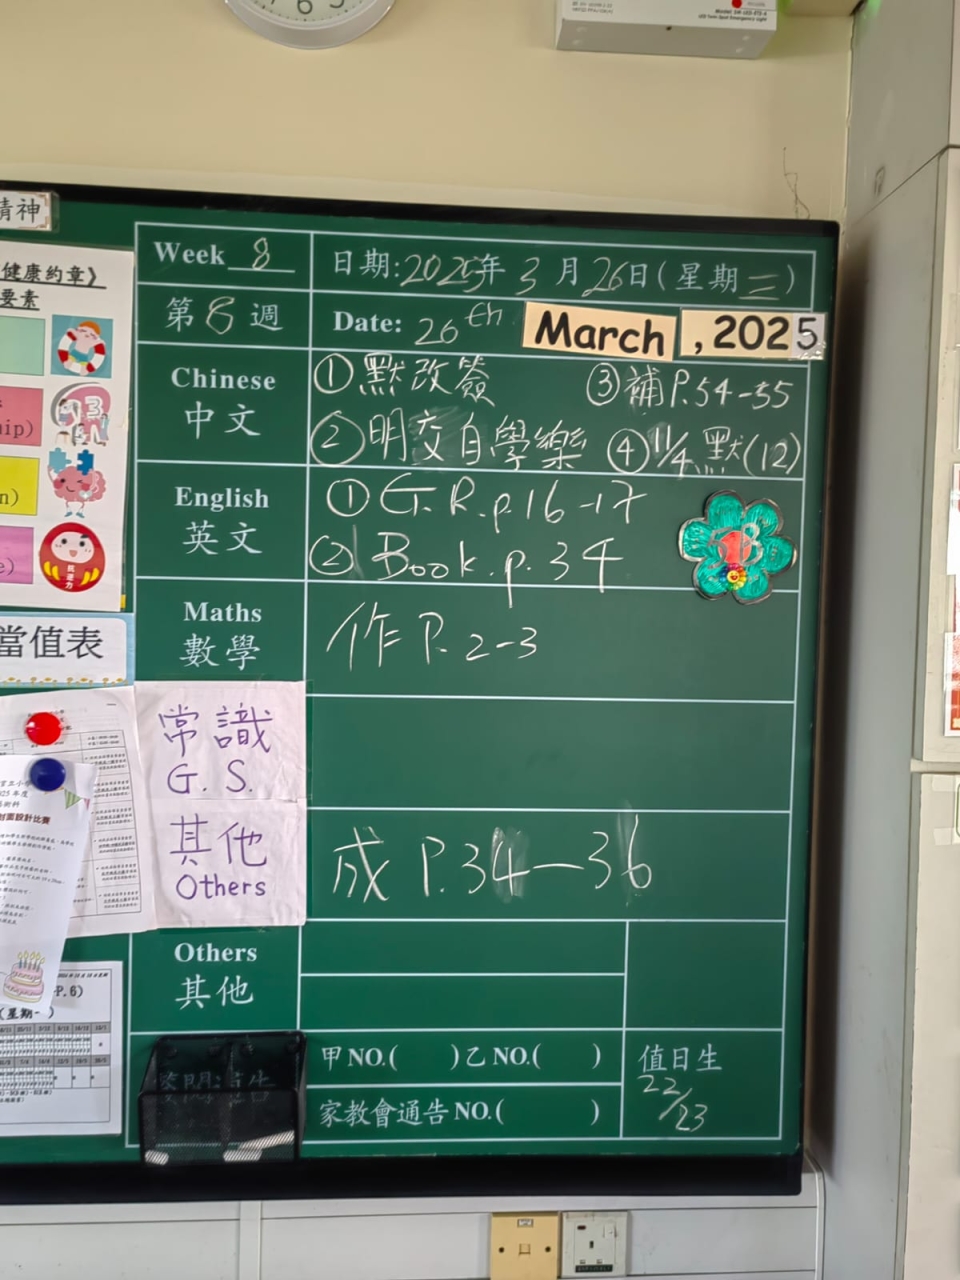 精神
健康約章》
要素
當值表
Week 8
日期:2025年 3 月 26日(星期三)
第 8 週
Date: 26th March , 2025
Chinese
中文
① 默改簽
③ 補P.54-55
② 明交自學樂
④ 11/4 默(12)
English
英文
① G.R.p.16-17
② Book.p.34
Maths
數學
作 P.2-3
常識
G.S.
其他
Others
成 P.34-36
Others
其他
甲NO.( )乙NO.( )
家教會通告NO.( )
值日生
22/23
封面設計比賽
P.6)
(星期一)